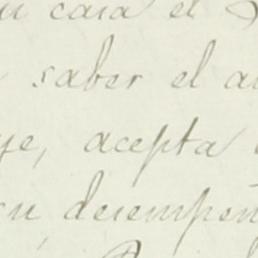 casa el
saber el
acepta
su desempeñ